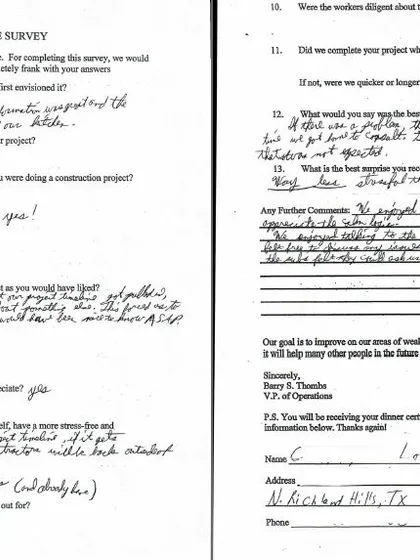 E SURVEY
e. For completing this survey, we would
etely frank with your answers
first envisioned it?
formation was great and the
our kitchen.
r project?
u were doing a construction project?
yes!
t as you would have liked?
t our project timeline got pushed,
out something else. This forced us to
would have been nice to know ASAP.
eciate? yes
elf, have a more stress-free and
timeline, if it gets
will be back
(and already have)
out for?
10. Were the workers diligent about t
11. Did we complete your project wh
If not, were we quicker or longer
12. What would you say was the bes
If there was a problem, th
time we got home to consult.
that was not expected.
13. What is the best surprise you rece
Way less stressful th
Any Further Comments: We enjoyed
appreciate the
We enjoyed talking to the
felt free to discuss any issues
the subs felt they could ask us
Our goal is to improve on our areas of weak
it will help many other people in the future
Sincerely,
Barry S. Thombs
V.P. of Operations
P.S. You will be receiving your dinner cert
information below. Thanks again!
Name C.
Address
N. Richland Hills, TX
Phone